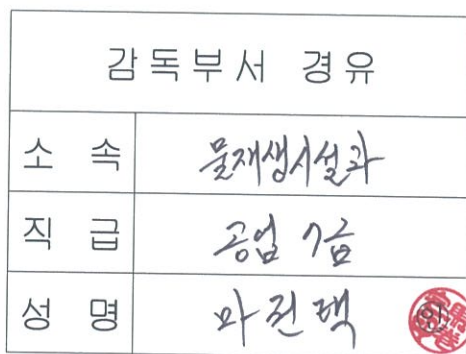 감독부서 경유
소 속 물재생시설과
직 급 공업 7급
성 명 마진택 (인)